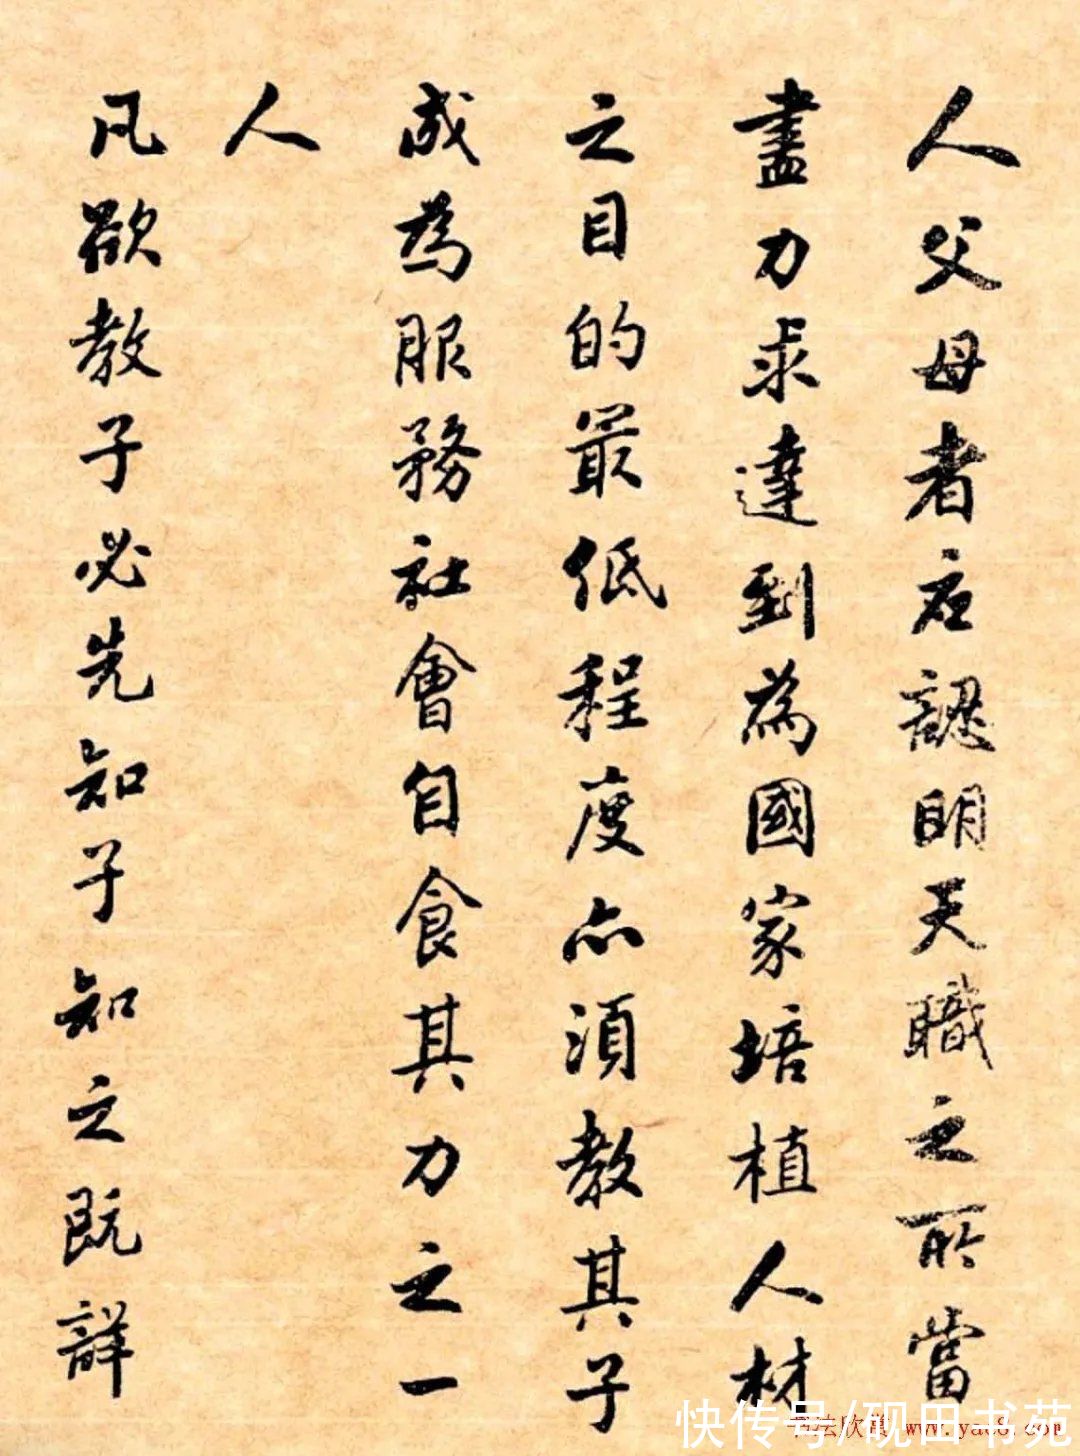 人父母者应認明天職之所當
盡力求達到為國家培植人材
之目的最低程度亦須教其子
成為服務社會自食其力之一
人
凡欲教子必先知子知之既詳
快传号/砚田书苑
书法欣赏 www.yac8.com